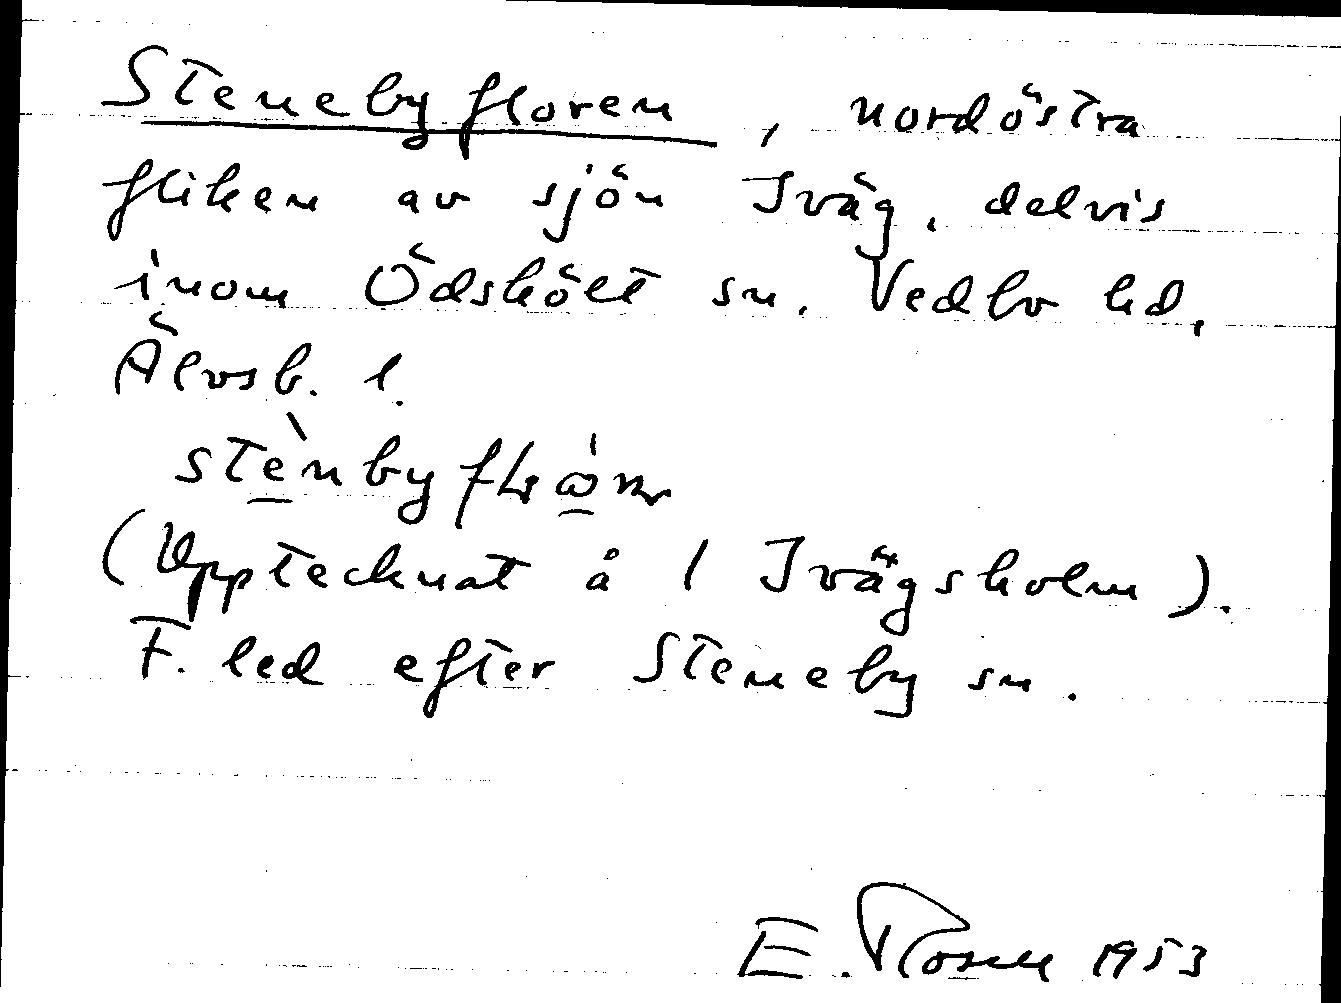 Stenebyfloren, nordöstra
fliken av sjön Iväg, delvis
inom Ödskölt sn. Vedbo hd,
Älvsb. l.
stènbyflɷ̀n
(Upptecknat å / Ivägsholm).
F. led efter Steneby sn.
E. Rosell 1953